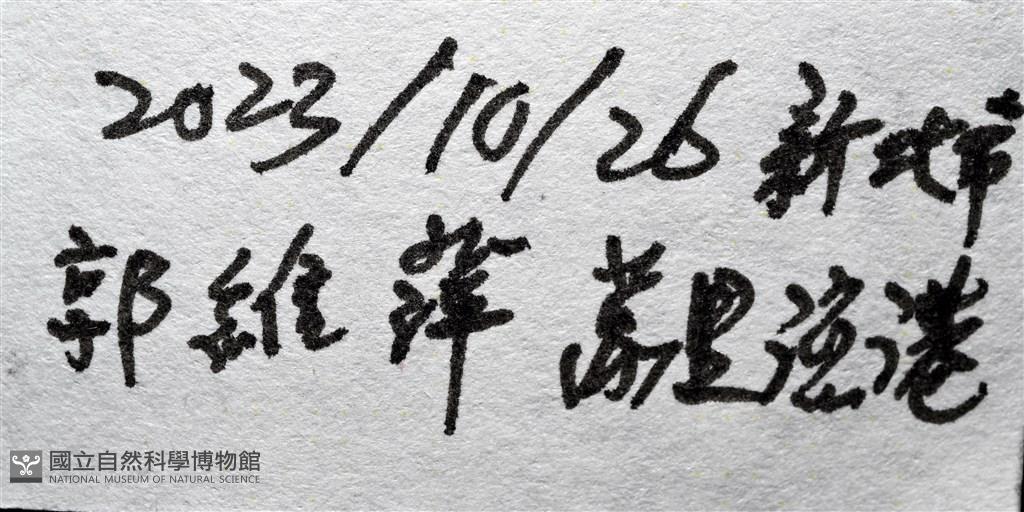 2023/10/26 新北市
郭維 萬里漁港
國立自然科學博物館
NATIONAL MUSEUM OF NATURAL SCIENCE